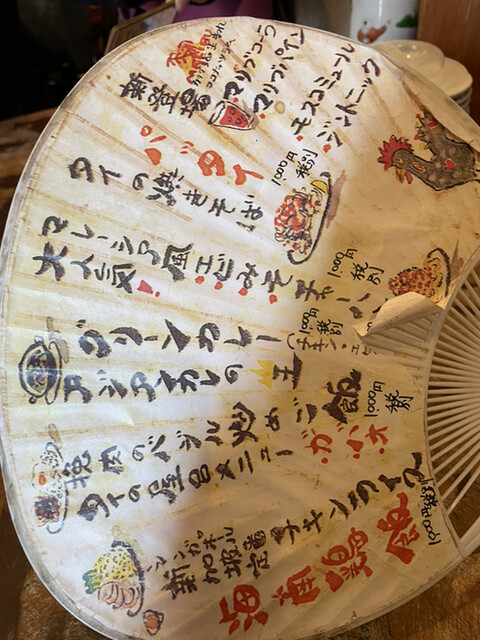 新登場
マリブコーラ
マリブパイン
モスコミュール
ジントニック
パッタイ
タイの焼きそば
1,000円 税別
マレーシア風エビみそチャーハン
大人気!
1,000円 税別
グリーンカレー
アジアカレーの王
1,000円 税別
挽肉のバジル炒めご飯
ガパオ
タイの屋台メニュー
1,000円 税別
海南鶏飯
シンガポール
新加坡
定番
チキンライス
1,000円 税別